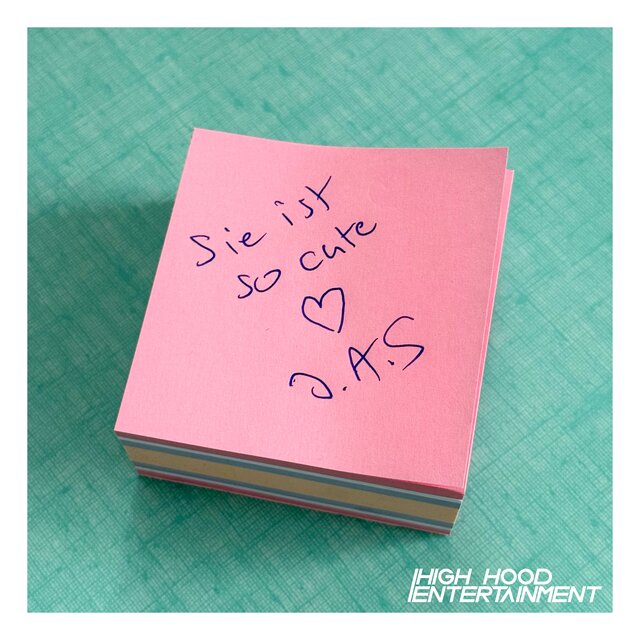 Sie ist
so cute
♡
D.A.S
HIGH HOOD
ENTERTAINMENT